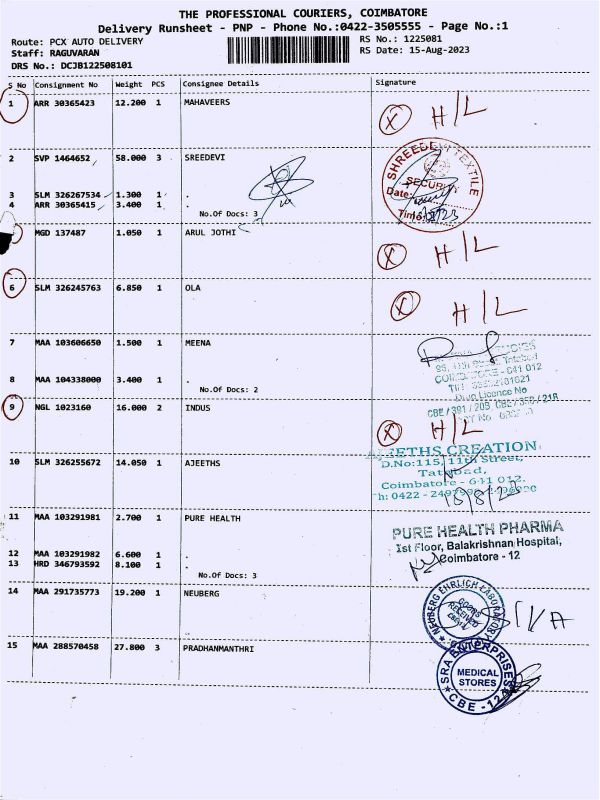 THE PROFESSIONAL COURIERS, COIMBATORE
Delivery Runsheet - PNP - Phone No.:0422-3505555 - Page No.:1
Route: PCX AUTO DELIVERY
RS No.: 1225081
Staff: RAGUVARAN
RS Date: 15-Aug-2023
DRS No.: DCJB122508101
S No Consignment No Weight PCS Consignee Details Signature
1 ARR 30365423 12.200 1 MAHAVEERS
X H/L
2 SVP 1464652 58.000 3 SREEDEVI
SHREEDEVI TEXTILE
SECURITY
Date
Time
3 SLM 326267534 1.300 1 .
4 ARR 30365415 3.400 1 .
No.Of Docs: 3
MGD 137487 1.050 1 ARUL JOTHI
X H/L
6 SLM 326245763 6.850 1 OLA
X H/L
7 MAA 103606650 1.500 1 MEENA
8 MAA 104338000 3.400 1 .
No.Of Docs: 2
COIMBATORE - 641 012
Drug Licence No
9 NGL 1023160 16.000 2 INDUS
X H/L
10 SLM 326255672 14.050 1 AJEETHS
AJEETHS CREATION
D.No:115, 11th Street,
Tatabad,
Coimbatore - 641 012.
18/8/23
11 MAA 103291981 2.700 1 PURE HEALTH
PURE HEALTH PHARMA
Ist Floor, Balakrishnan Hospital,
Coimbatore - 12
12 MAA 103291982 6.600 1 .
13 HRD 346793592 8.100 1 .
No.Of Docs: 3
14 MAA 291735773 19.200 1 NEUBERG
NEUBERG EHRLICH LABORATORY
GOODS
RECEIVED
SIVA
15 MAA 288570458 27.800 3 PRADHANMANTHRI
SRA ENTERPRISES
MEDICAL
STORES
CBE - 12